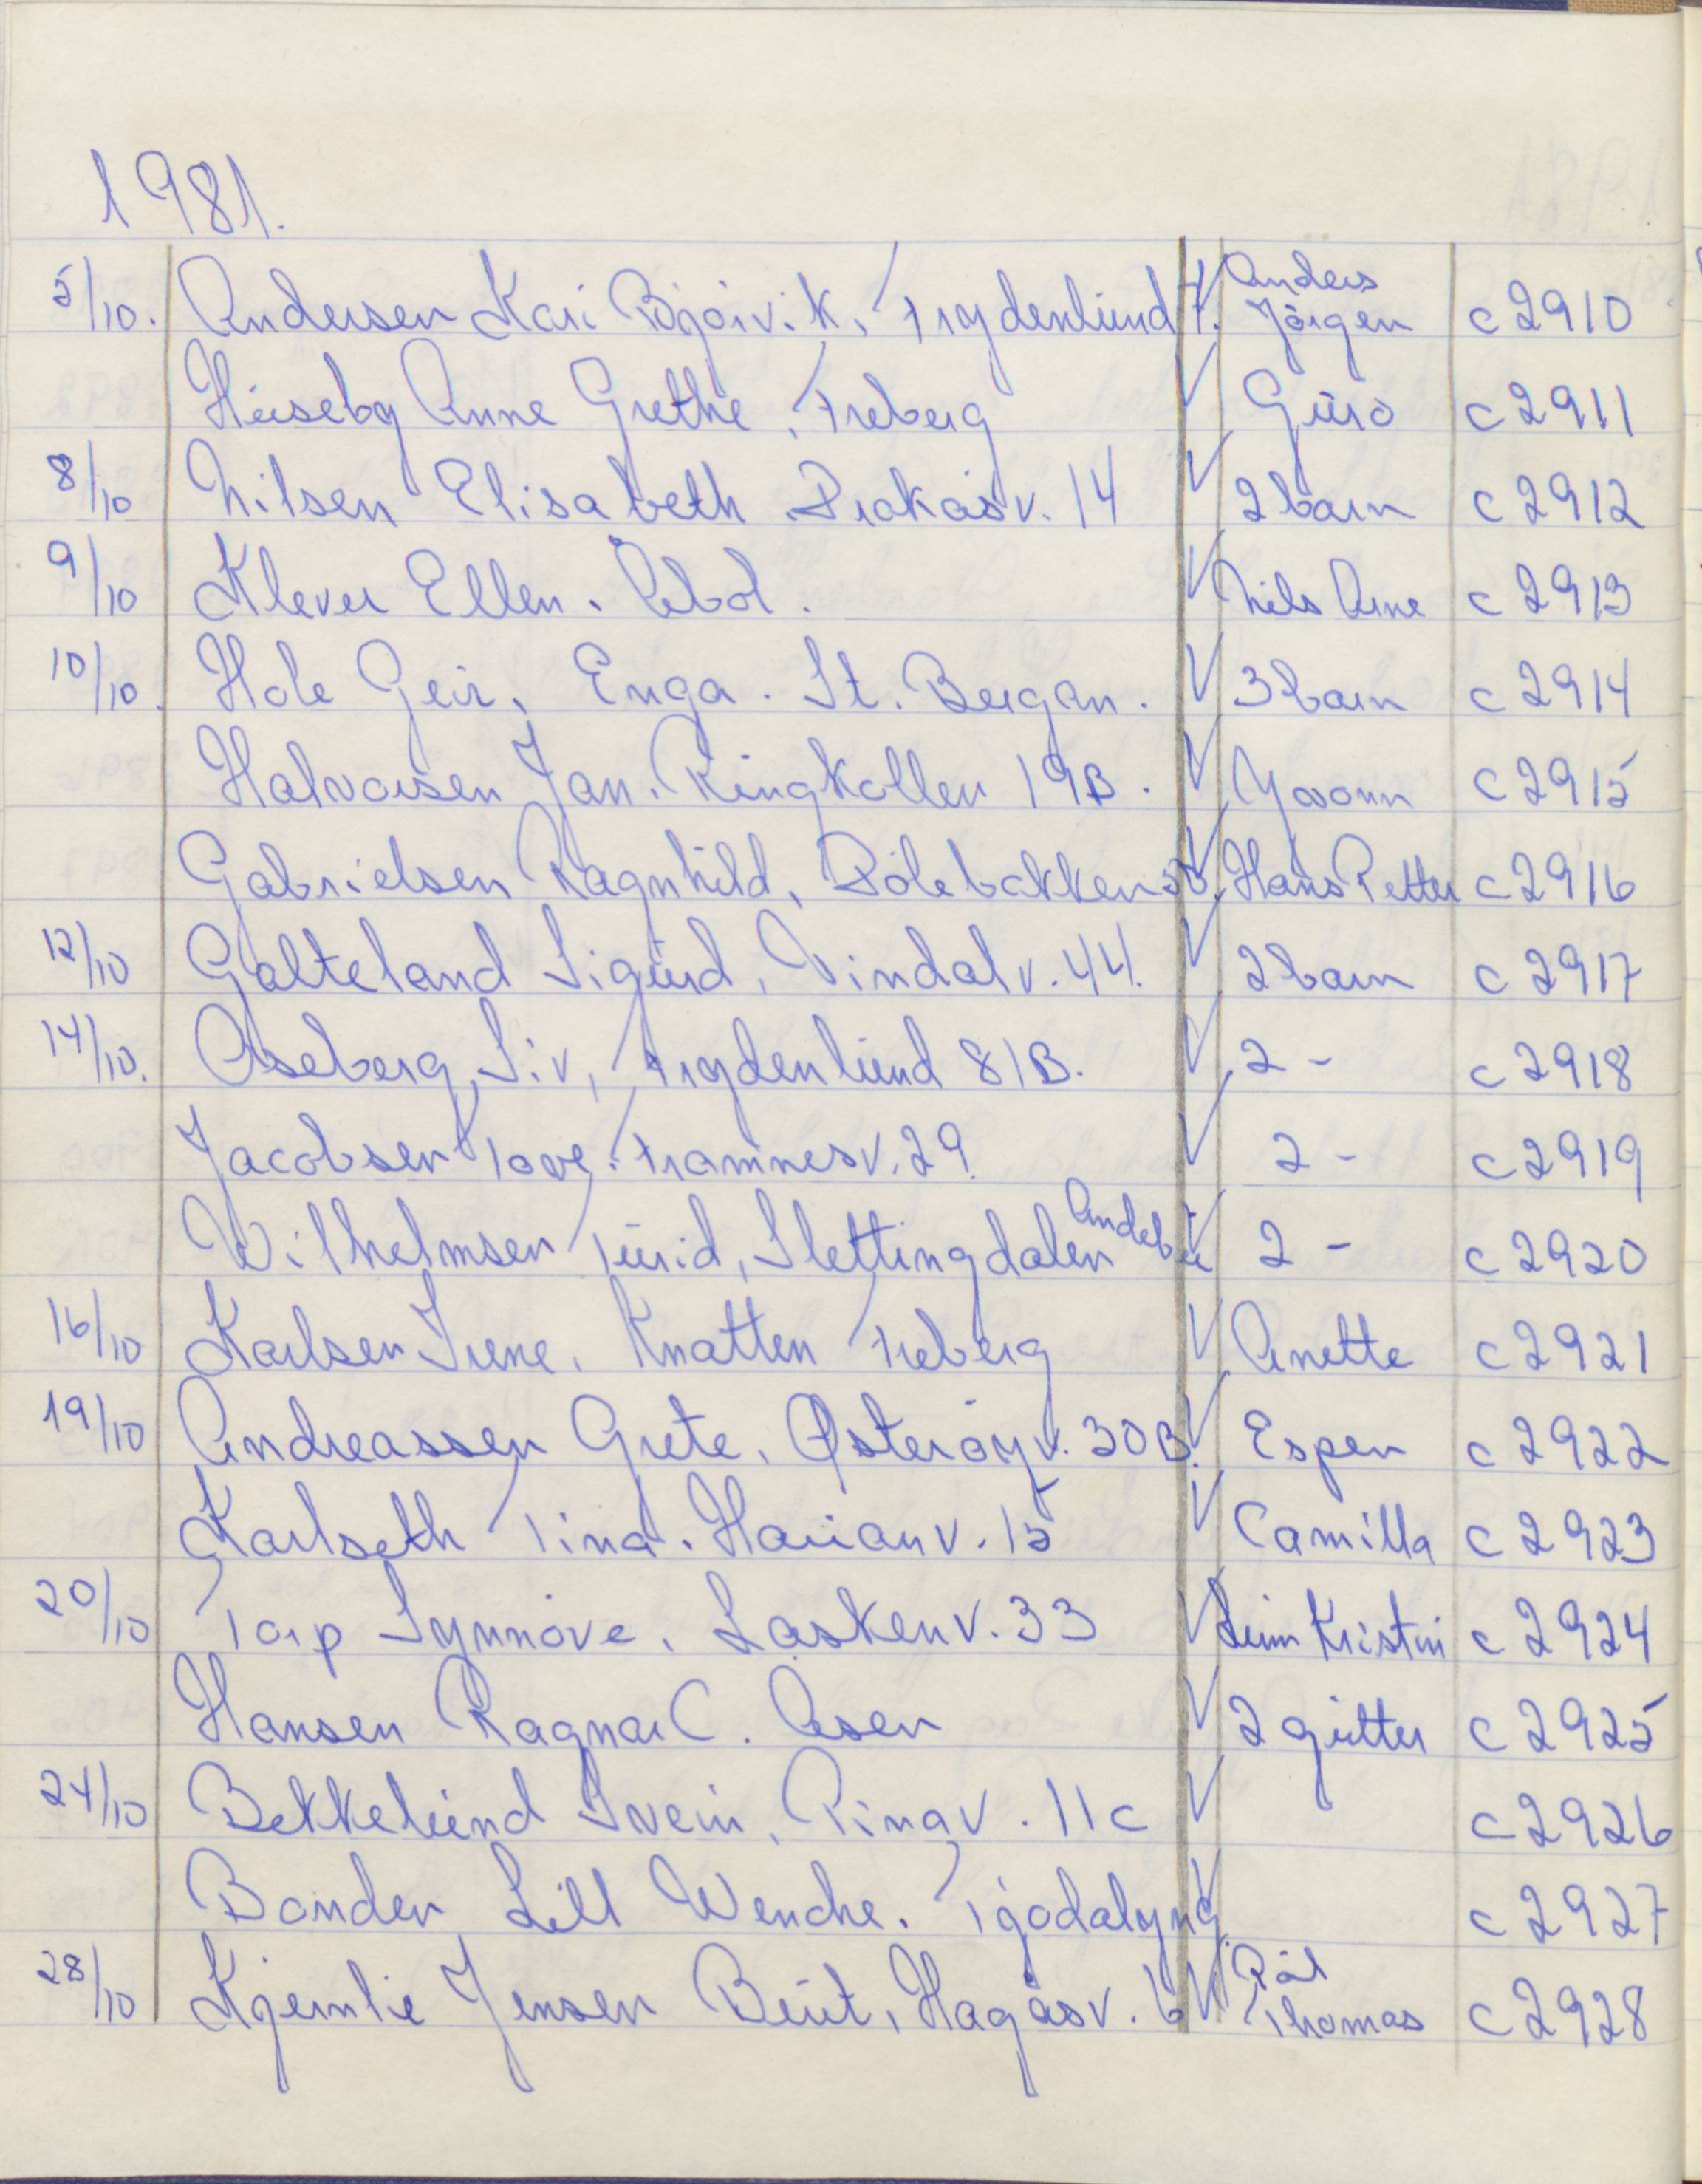 1981.
5/10. Andersen Kari Bjørvik, Frydenlund 7. Anders Jörgen c 2910
Huseby Anne Grethe, Freberg Guro c 2911
8/10 Nilsen Elisabeth. Prakåsv. 14 2 barn c 2912
9/10 Klever Ellen. Nils Arne c 2913
10/10. Hole Geir, Enga. St. Bergan. 3 barn c 2914
Halvorsen Jan. Ringkollen 19B. Yvonn c 2915
Gabrielsen Ragnhild, Hans Petter c 2916
12/10 Galteland Sigurd, Vindalv. 44. 2 barn c 2917
14/10. Aseberg Siv, Frydenlund 81B. 2 - c 2918
Jacobsen Tove. Framnesv. 29. 2 - c 2919
Wilhelmsen Turid, Slettingdalen Andebu 2 - c 2920
16/10 Karlsen Irene. Knatten Freberg Anette c 2921
19/10 Andreassen Grete. Østerøyv. 30B. Espen c 2922
Karlseth Tina. Hauanv. 15 Camilla c 2923
20/10 Torp Synnöve. Laskenv. 33 Linn Kristin c 2924
Hansen Ragnar C. Åsen 2 gutter c 2925
24/10 Bekkelund Svein, Ringv. 11c c 2926
Bonden Lill Wenche. c 2927
28/10 Kjernlie Jensen Berit, Hagåsv. 6 Pål Thomas c 2928